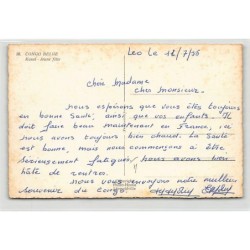 CONGO BELGE
Leo Le 12/7/56
Chère Madame
Cher Monsieur.
nous espérons que vous êtes toujours
en bonne Santé, ainsi que vos enfants. Il
doit faire beau maintenant en France, ici
nous avons toujours bien chaud. La Santé
est bonne, mais nous commençons à être
Sérieusement fatigués, nous avons bien
hâte de rentrer.
nous vous envoyons notre meilleur
Souvenir du Congo.